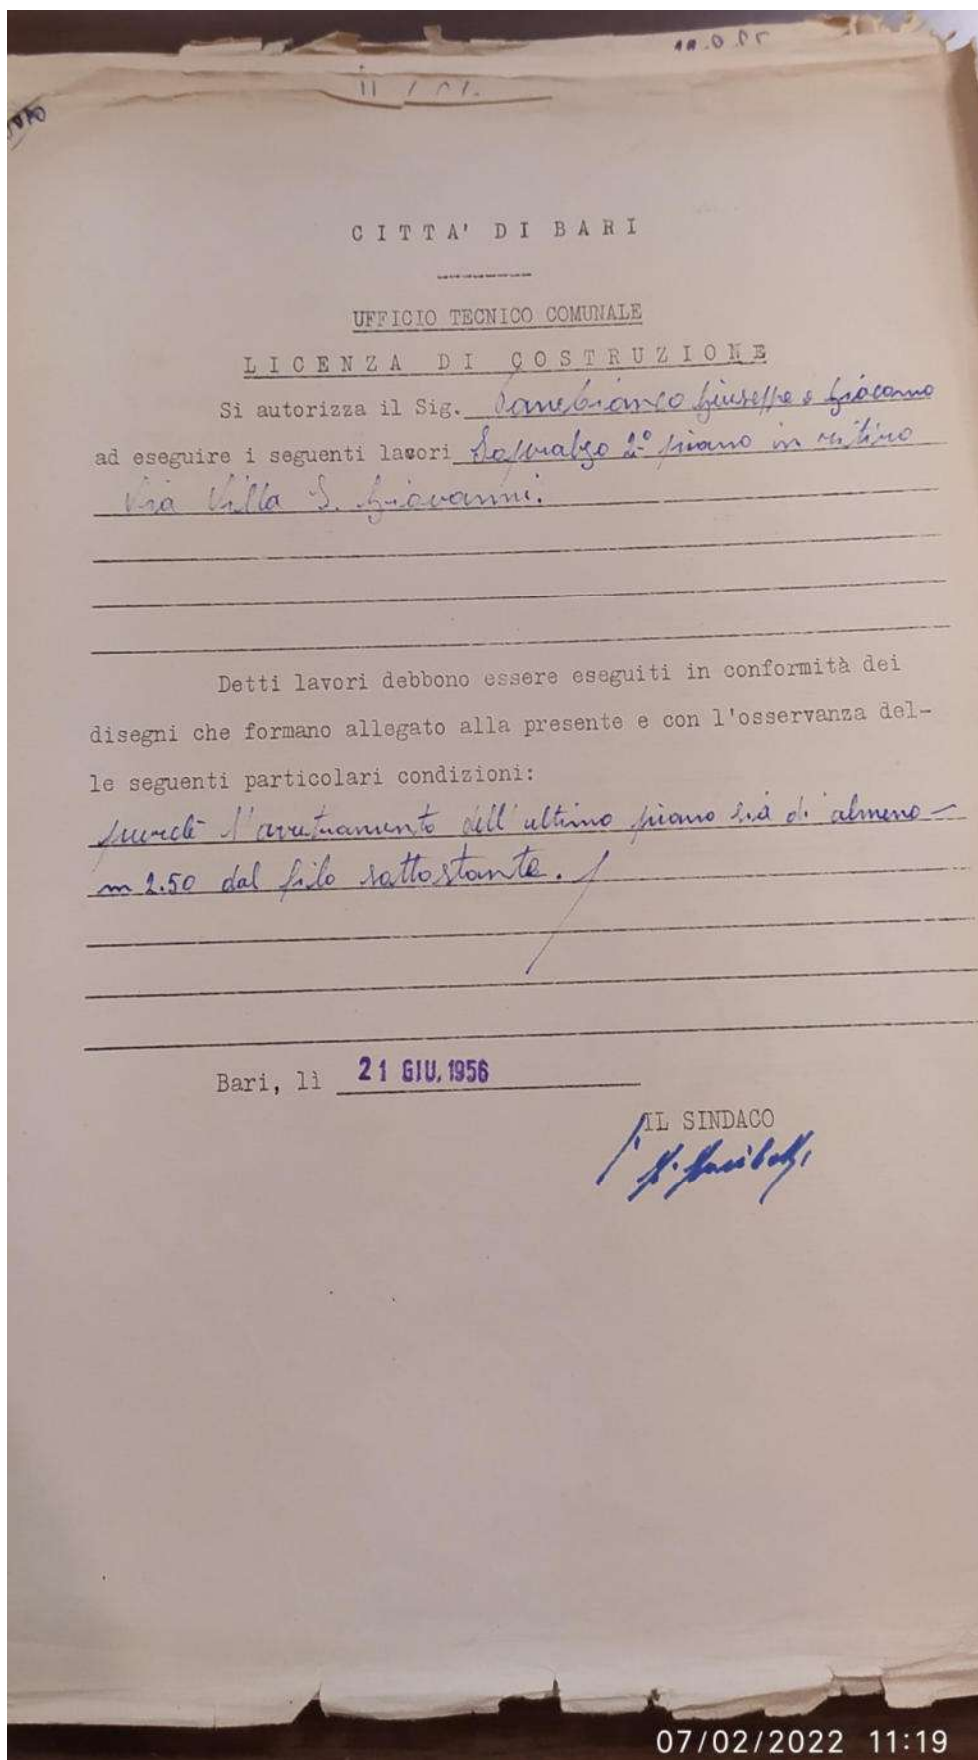 CITTA' DI BARI
UFFICIO TECNICO COMUNALE
LICENZA DI COSTRUZIONE
Si autorizza il Sig. Panebianco Giuseppe e Giacomo
ad eseguire i seguenti lavori Sopralzo 2° piano in ritiro
Via Villa S. Giovanni.
Detti lavori debbono essere eseguiti in conformità dei
disegni che formano allegato alla presente e con l'osservanza del-
le seguenti particolari condizioni:
purchè l'arretramento dell'ultimo piano sia di almeno
m 2.50 dal filo sottostante.
Bari, lì 21 GIU. 1956
IL SINDACO
07/02/2022 11:19